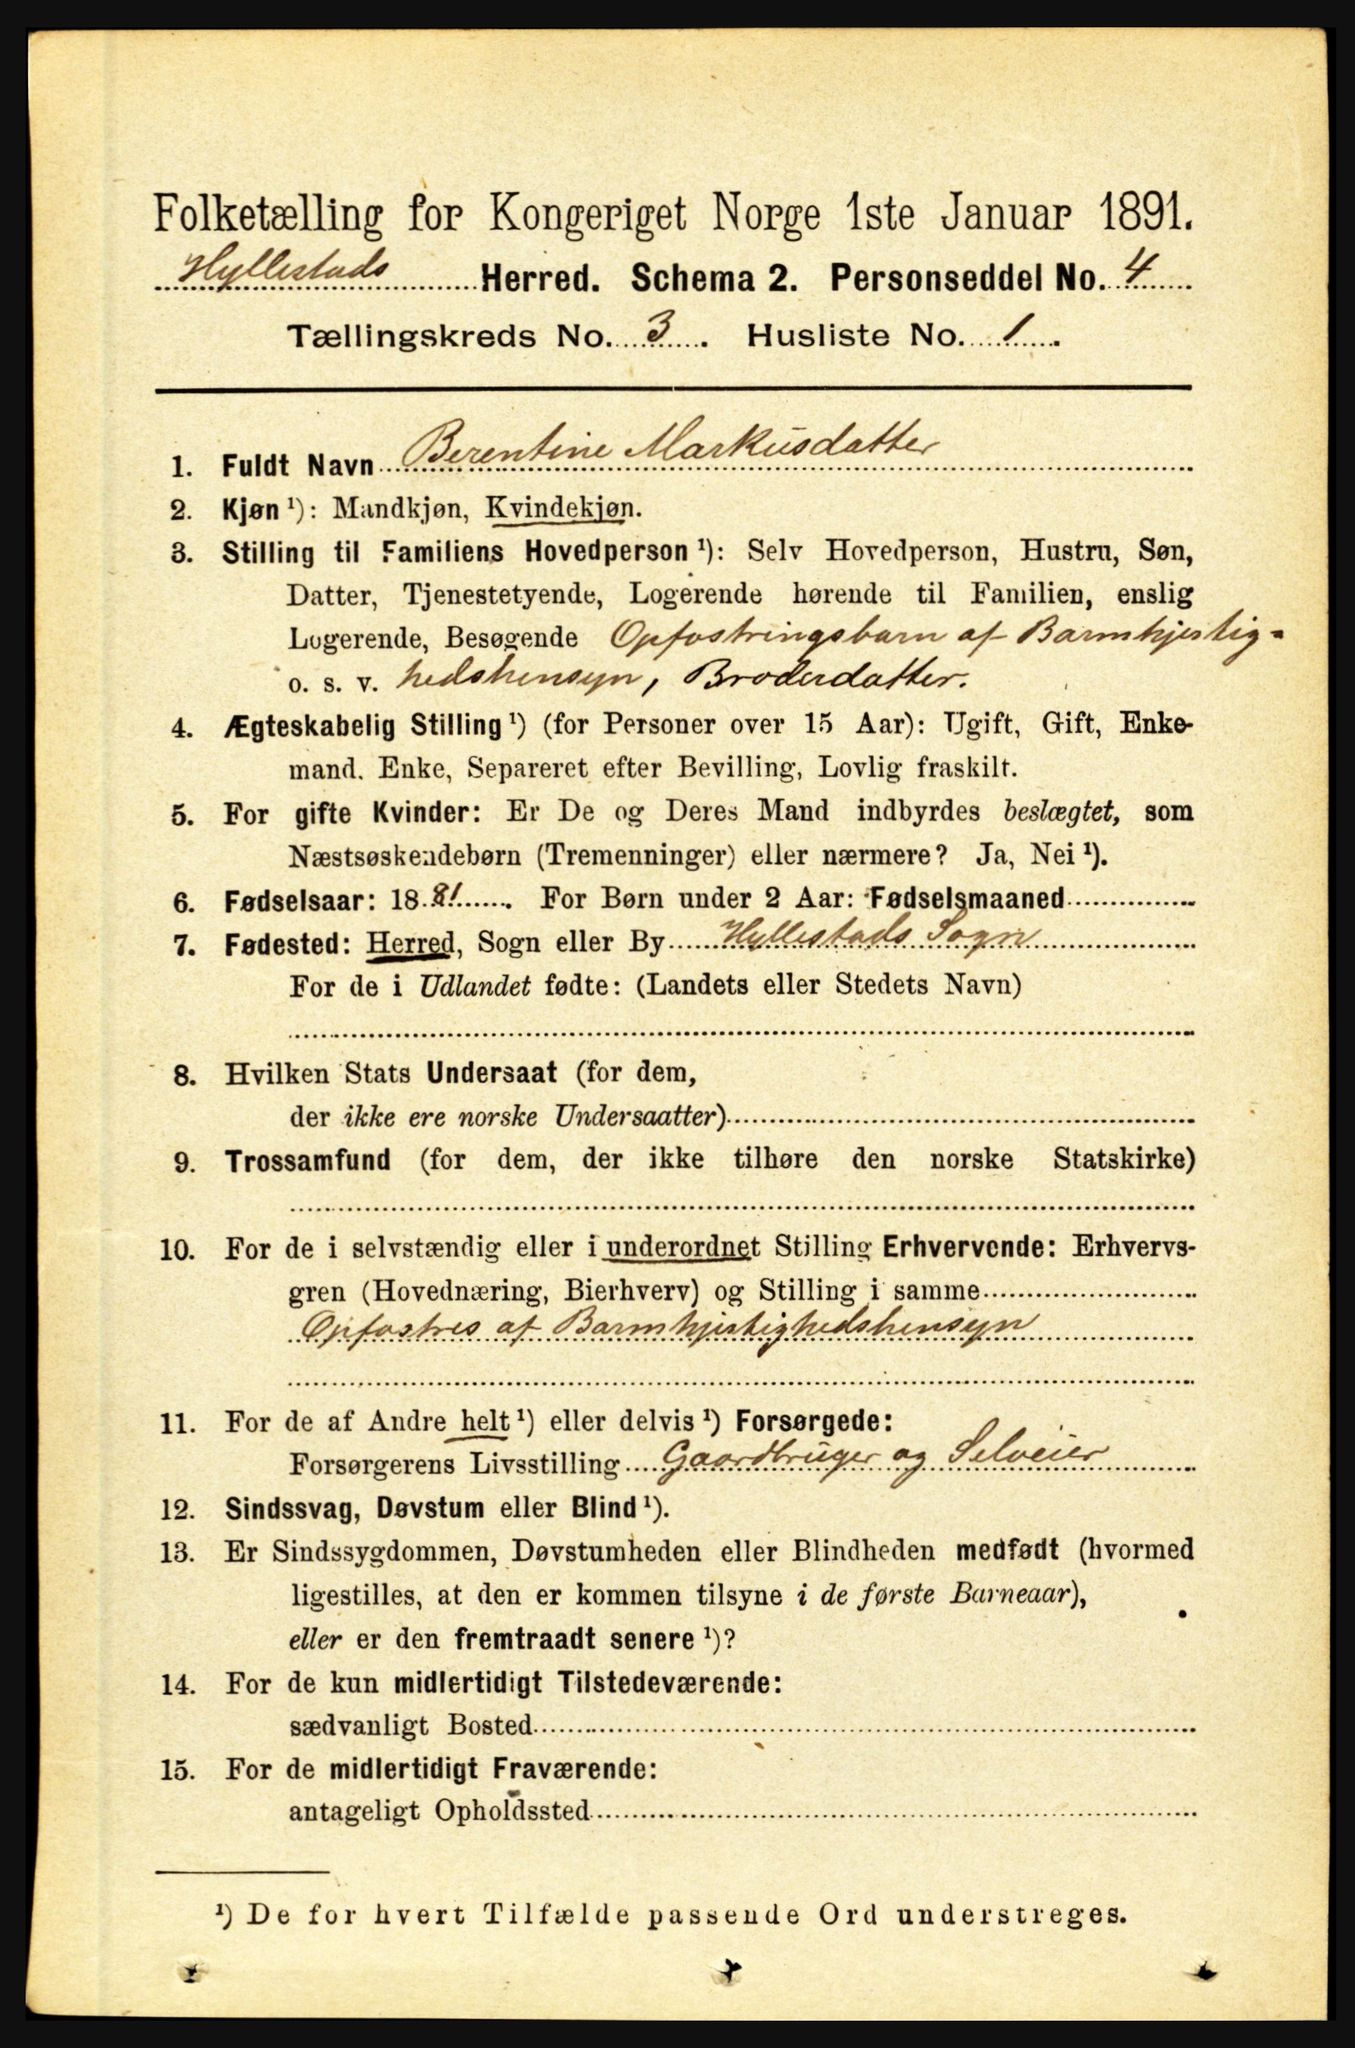 Folketælling for Kongeriget Norge 1ste Januar 1891.
Hyllestads Herred. Schema 2. Personseddel No. 4
Tællingskreds No. 3. Husliste No. 1.
1. Fuldt Navn Berentine Markusdatter
2. Kjøn¹): Mandkjøn, Kvindekjøn.
3. Stilling til Familiens Hovedperson¹): Selv Hovedperson, Hustru, Søn,
Datter, Tjenestetyende, Logerende hørende til Familien, enslig
Logerende, Besøgende Opfostringsbarn af Barmhjertig-
o. s. v. hedshensyn, Broderdatter.
4. Ægteskabelig Stilling¹) (for Personer over 15 Aar): Ugift, Gift, Enke-
mand, Enke, Separeret efter Bevilling, Lovlig fraskilt.
5. For gifte Kvinder: Er De og Deres Mand indbyrdes beslægtet, som
Næstsøskendebørn (Tremenninger) eller nærmere? Ja, Nei¹).
6. Fødselsaar: 1881. For Børn under 2 Aar: Fødselsmaaned
7. Fødested: Herred, Sogn eller By Hyllestads Sogn
For de i Udlandet fødte: (Landets eller Stedets Navn)
8. Hvilken Stats Undersaat (for dem,
der ikke ere norske Undersaatter)
9. Trossamfund (for dem, der ikke tilhøre den norske Statskirke)
10. For de i selvstændig eller i underordnet Stilling Erhvervende: Erhvervs-
gren (Hovednæring, Bierhverv) og Stilling i samme
Opfostres af Barmhjertighedshensyn
11. For de af Andre helt¹) eller delvis¹) Forsørgede:
Forsørgerens Livsstilling Gaardbruger og Selveier
12. Sindssvag, Døvstum eller Blind¹).
13. Er Sindssygdommen, Døvstumheden eller Blindheden medfødt (hvormed
ligestilles, at den er kommen tilsyne i de første Barneaar),
eller er den fremtraadt senere¹)?
14. For de kun midlertidigt Tilstedeværende:
sædvanligt Bosted
15. For de midlertidigt Fraværende:
antageligt Opholdssted
¹) De for hvert Tilfælde passende Ord understreges.